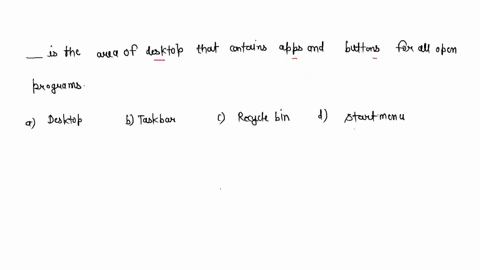 __ is the area of desktop that contains apps and buttons for all open
programs.
a) Desktop b) Taskbar c) Recycle bin d) Start menu